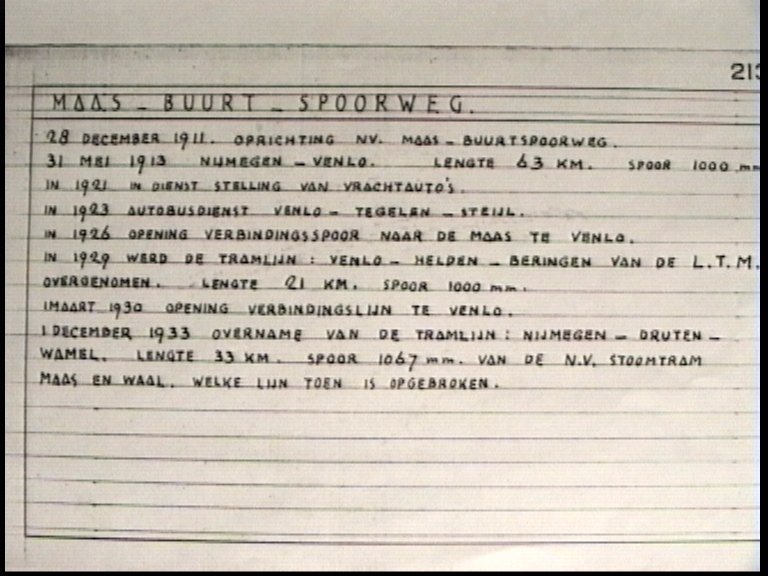 213
MAAS - BUURT - SPOORWEG.
28 DECEMBER 1911. OPRICHTING NV. MAAS - BUURTSPOORWEG.
31 MEI 1913 NIJMEGEN - VENLO. LENGTE 63 KM. SPOOR 1000 mm
IN 1921 IN DIENST STELLING VAN VRACHTAUTO'S.
IN 1923 AUTOBUSDIENST VENLO - TEGELEN - STEIJL.
IN 1926 OPENING VERBINDINGSSPOOR NAAR DE MAAS TE VENLO.
IN 1929 WERD DE TRAMLIJN : VENLO - HELDEN - BERINGEN VAN DE L.T.M.
OVERGENOMEN. LENGTE 21 KM. SPOOR 1000 mm.
1 MAART 1930 OPENING VERBINDINGSLIJN TE VENLO.
1 DECEMBER 1933 OVERNAME VAN DE TRAMLIJN : NIJMEGEN - DRUTEN -
WAMEL. LENGTE 33 KM. SPOOR 1067 mm. VAN DE N.V. STOOMTRAM
MAAS EN WAAL. WELKE LIJN TOEN IS OPGEBROKEN.